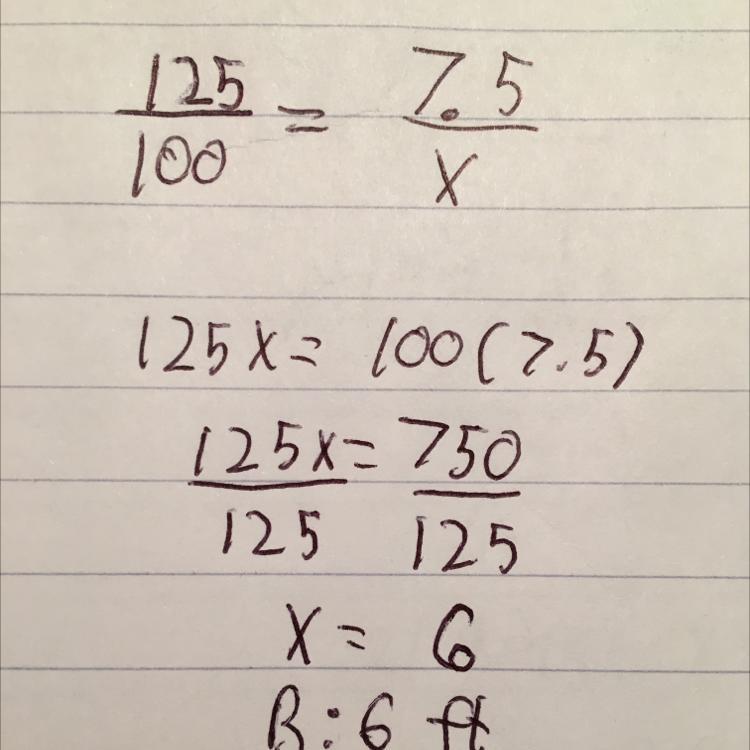 125/100 = 7.5/x
125x = 100(7.5)
125x/125 = 750/125
x = 6
B: 6 ft